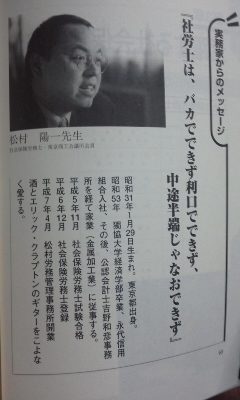 実務家からのメッセージ
『社労士は、バカでできず利口でできず、
中途半端じゃなおできず』
松村 陽一先生
昭和31年1月29日生まれ。東京都出身。
昭和53年 獨協大学経済学部卒業、永代信用
組合入社、その後、公認会計士吉野和彦事務
所を経て家業(金属加工業)に従事する。
平成5年11月 社会保険労務士試験合格
平成6年12月 社会保険労務士登録
平成7年4月 松村労務管理事務所開業
酒とエリック・クラプトンのギターをこよな
く愛する。